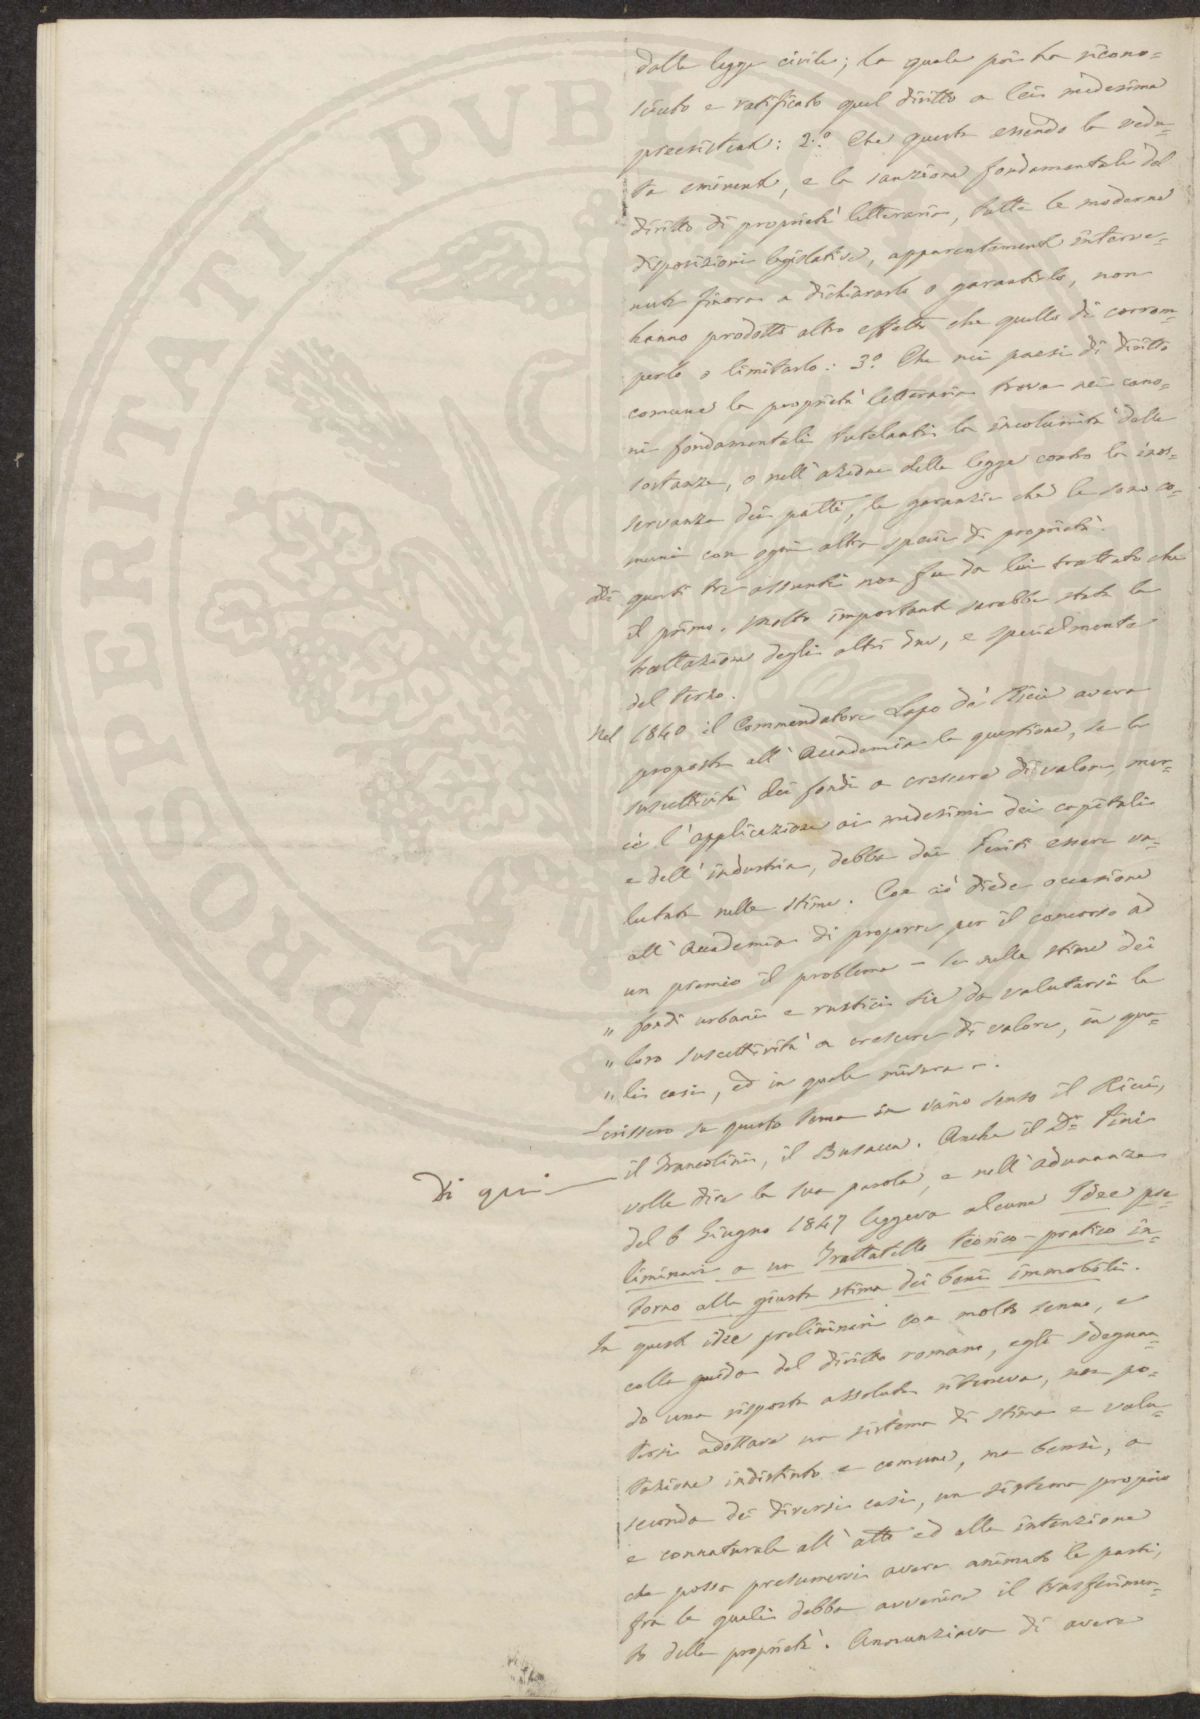 dalla legge civile; la quale poi ha ricono=
sciuto e ratificato quel diritto a lei medesima
preesistente: 2.º Che questa essendo la vedu=
ta eminente, e la sanzione fondamentale del
diritto di proprietà letteraria, tutte le moderne
disposizioni legislative, apparentemente interve=
nute finora a dichiararlo o garantirlo, non
hanno prodotto altro effetto che quello di corrom=
perlo o limitarlo: 3.º Che nei paesi di diritto
comune la proprietà letteraria trova nei cano=
ni fondamentali tutelanti la incolumità delle
sostanze, o nell'azione della legge contro la inos=
servanza dei patti, le garanzie che le sono co=
muni con ogni altra specie di proprietà.
Di questi tre assunti non fu da lui trattato che
il primo. Molto importante sarebbe stata la
trattazione degli altri due, e specialmente
del terzo.
Nel 1840 il Commendatore Lapo de' Ricci aveva
proposta all'Accademia la questione, se la
suscettività dei fondi a crescere di valore, mer=
cè l'applicazione ai medesimi dei capitali
e dell'industria, debba dai Periti essere va=
lutata nelle stime. Con ciò diede occasione
all'Accademia di proporre per il concorso ad
un premio il problema - se nelle stime dei
" fondi urbani e rustici sia da valutarsi la
" loro suscettività a crescere di valore, in qua=
" li casi, ed in quale misura -.
Scrissero su questo tema in vario senso il Ricci,
il Francolini, il Busacca. Anche il Dr. Fini
Di qui
volle dire la sua parola, e nell'adunanza
del 6 Giugno 1847 leggeva alcune Idee pre=
liminari a un Trattatello teorico-pratico in=
torno alla giusta stima dei beni immobili.
In queste idee preliminari con molto senno, e
colla guida del diritto romano, egli sdegnan=
do una risposta assoluta riteneva, non po=
tersi adottare un sistema di stima e valu=
tazione indistinto e comune, ma bensì, a
seconda dei diversi casi, un sistema proprio
e connaturale all'atto ed alla intenzione
che possa presumersi avere animato le parti,
fra le quali debba avvenire il trasferimen=
to della proprietà. Annunziava di avere